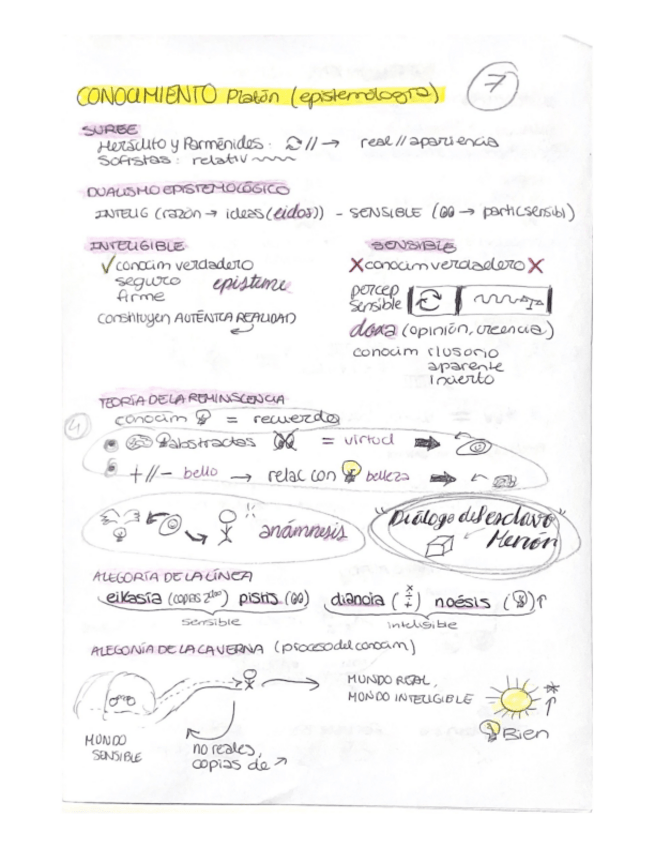 CONOCIMIENTO Platón (epistemología)
7
SURGE
Heráclito y Parménides. // → real // apariencia
Sofistas: relativ
DUALISMO EPISTEMOLÓGICO
INTELIG (razón → ideas (eidos)) - SENSIBLE ( → particsensibl)
INTELIGIBLE
✓ conocim verdadero
seguro episteme
firme
constituyen AUTÉNTICA REALIDAD
SENSIBLE
X conocim verdadero X
percep
sensible
doxa (opinión, creencia)
conocim ilusorio
aparente
incierto
TEORÍA DE LA REMINISCENCIA
4
conocim = recuerdo
abstractas = virtud
+//- bello → relac con belleza
anámnesis
"Diálogo del esclavo"
Menón
ALEGORÍA DE LA LÍNEA
eikasía (copias 2do) pistis dianoia noésis ↑
sensible inteligible
ALEGORÍA DE LA CAVERNA (proceso del conocim)
MUNDO REAL,
MUNDO INTELIGIBLE
Bien
MUNDO
SENSIBLE
no reales,
copias de ↗